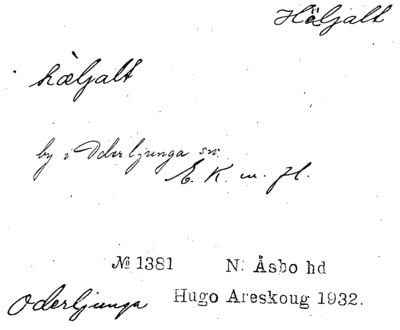 Höljalt
hàljalt
by i Oderljunga sn.
E. K. m. fl.
№ 1381 N. Åsbo hd
Oderljunga Hugo Areskoug 1932.